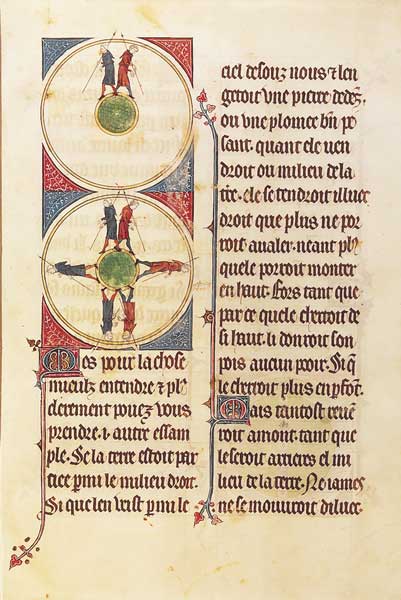 Mes pour la chose
mieulz entendre &
clerement pouez vous
prendre .i. autre essam
ple. Se la terre estoit par
tice parmi le milieu droit.
Si que len veist parmi le
ciel desouz nous & len
getoit vne pierre dedenz.
ou vne plomee bn pe
sant. quant ele ven
droit ou milieu de la
tre. ele se tendroit illuec
droit que plus ne por
roit aualer. neant plus
quele porroit monter
en haut. fors tant que
par ce quele cherroit de
si haut. li donroit son
pois aucun pooir. Si q̃
le cherroit plus en parfont.
Mais tantost reuen
roit amont. tant que
le seroit arrieres el mi
lieu de la terre. Ne iames
ne se mouuroit diluec.